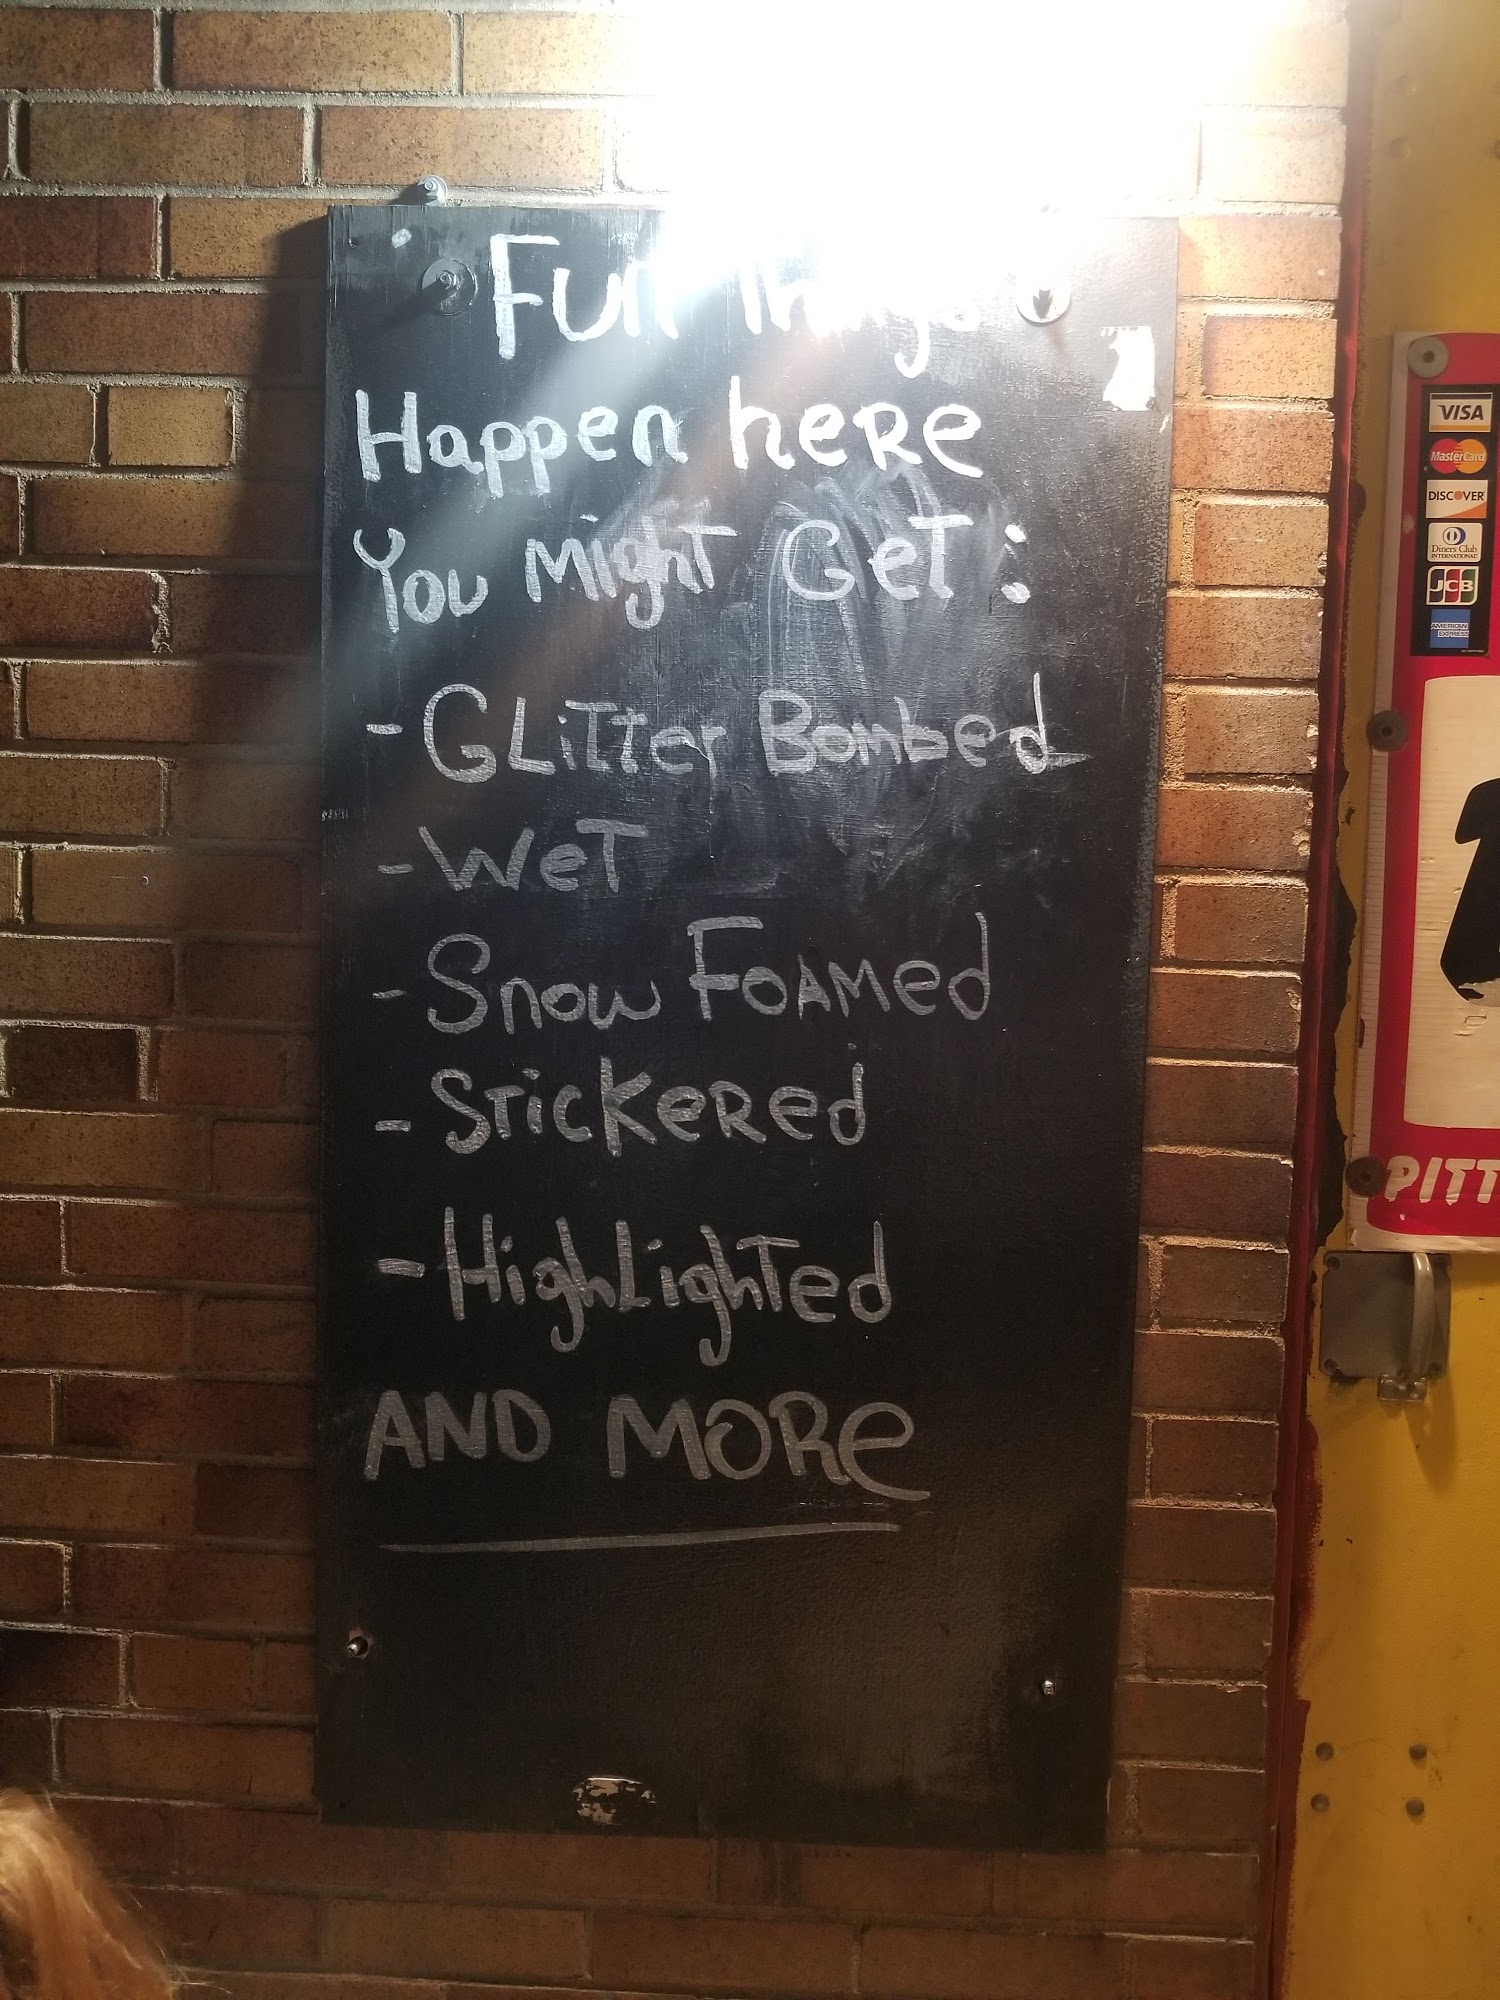 Fun Things
Happen here
You might Get:
- GLiTTer Bombed
- WeT
- Snow FOAMed
- STicKeRed
- HighLighTed
AND MORe
VISA
MasterCard
DISCOVER
Diners Club
INTERNATIONAL
JCB
AMERICAN
EXPRESS
PITT